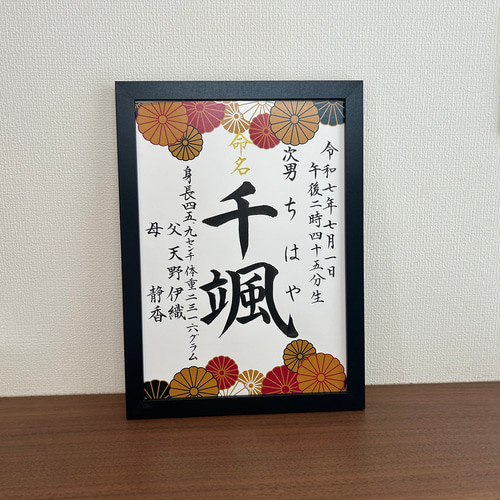 令和七年七月一日
午後二時四十五分生
次男 ちはや
命名
千颯
身長四五、九センチ 体重二三一六グラム
父 天野伊織
母 静香